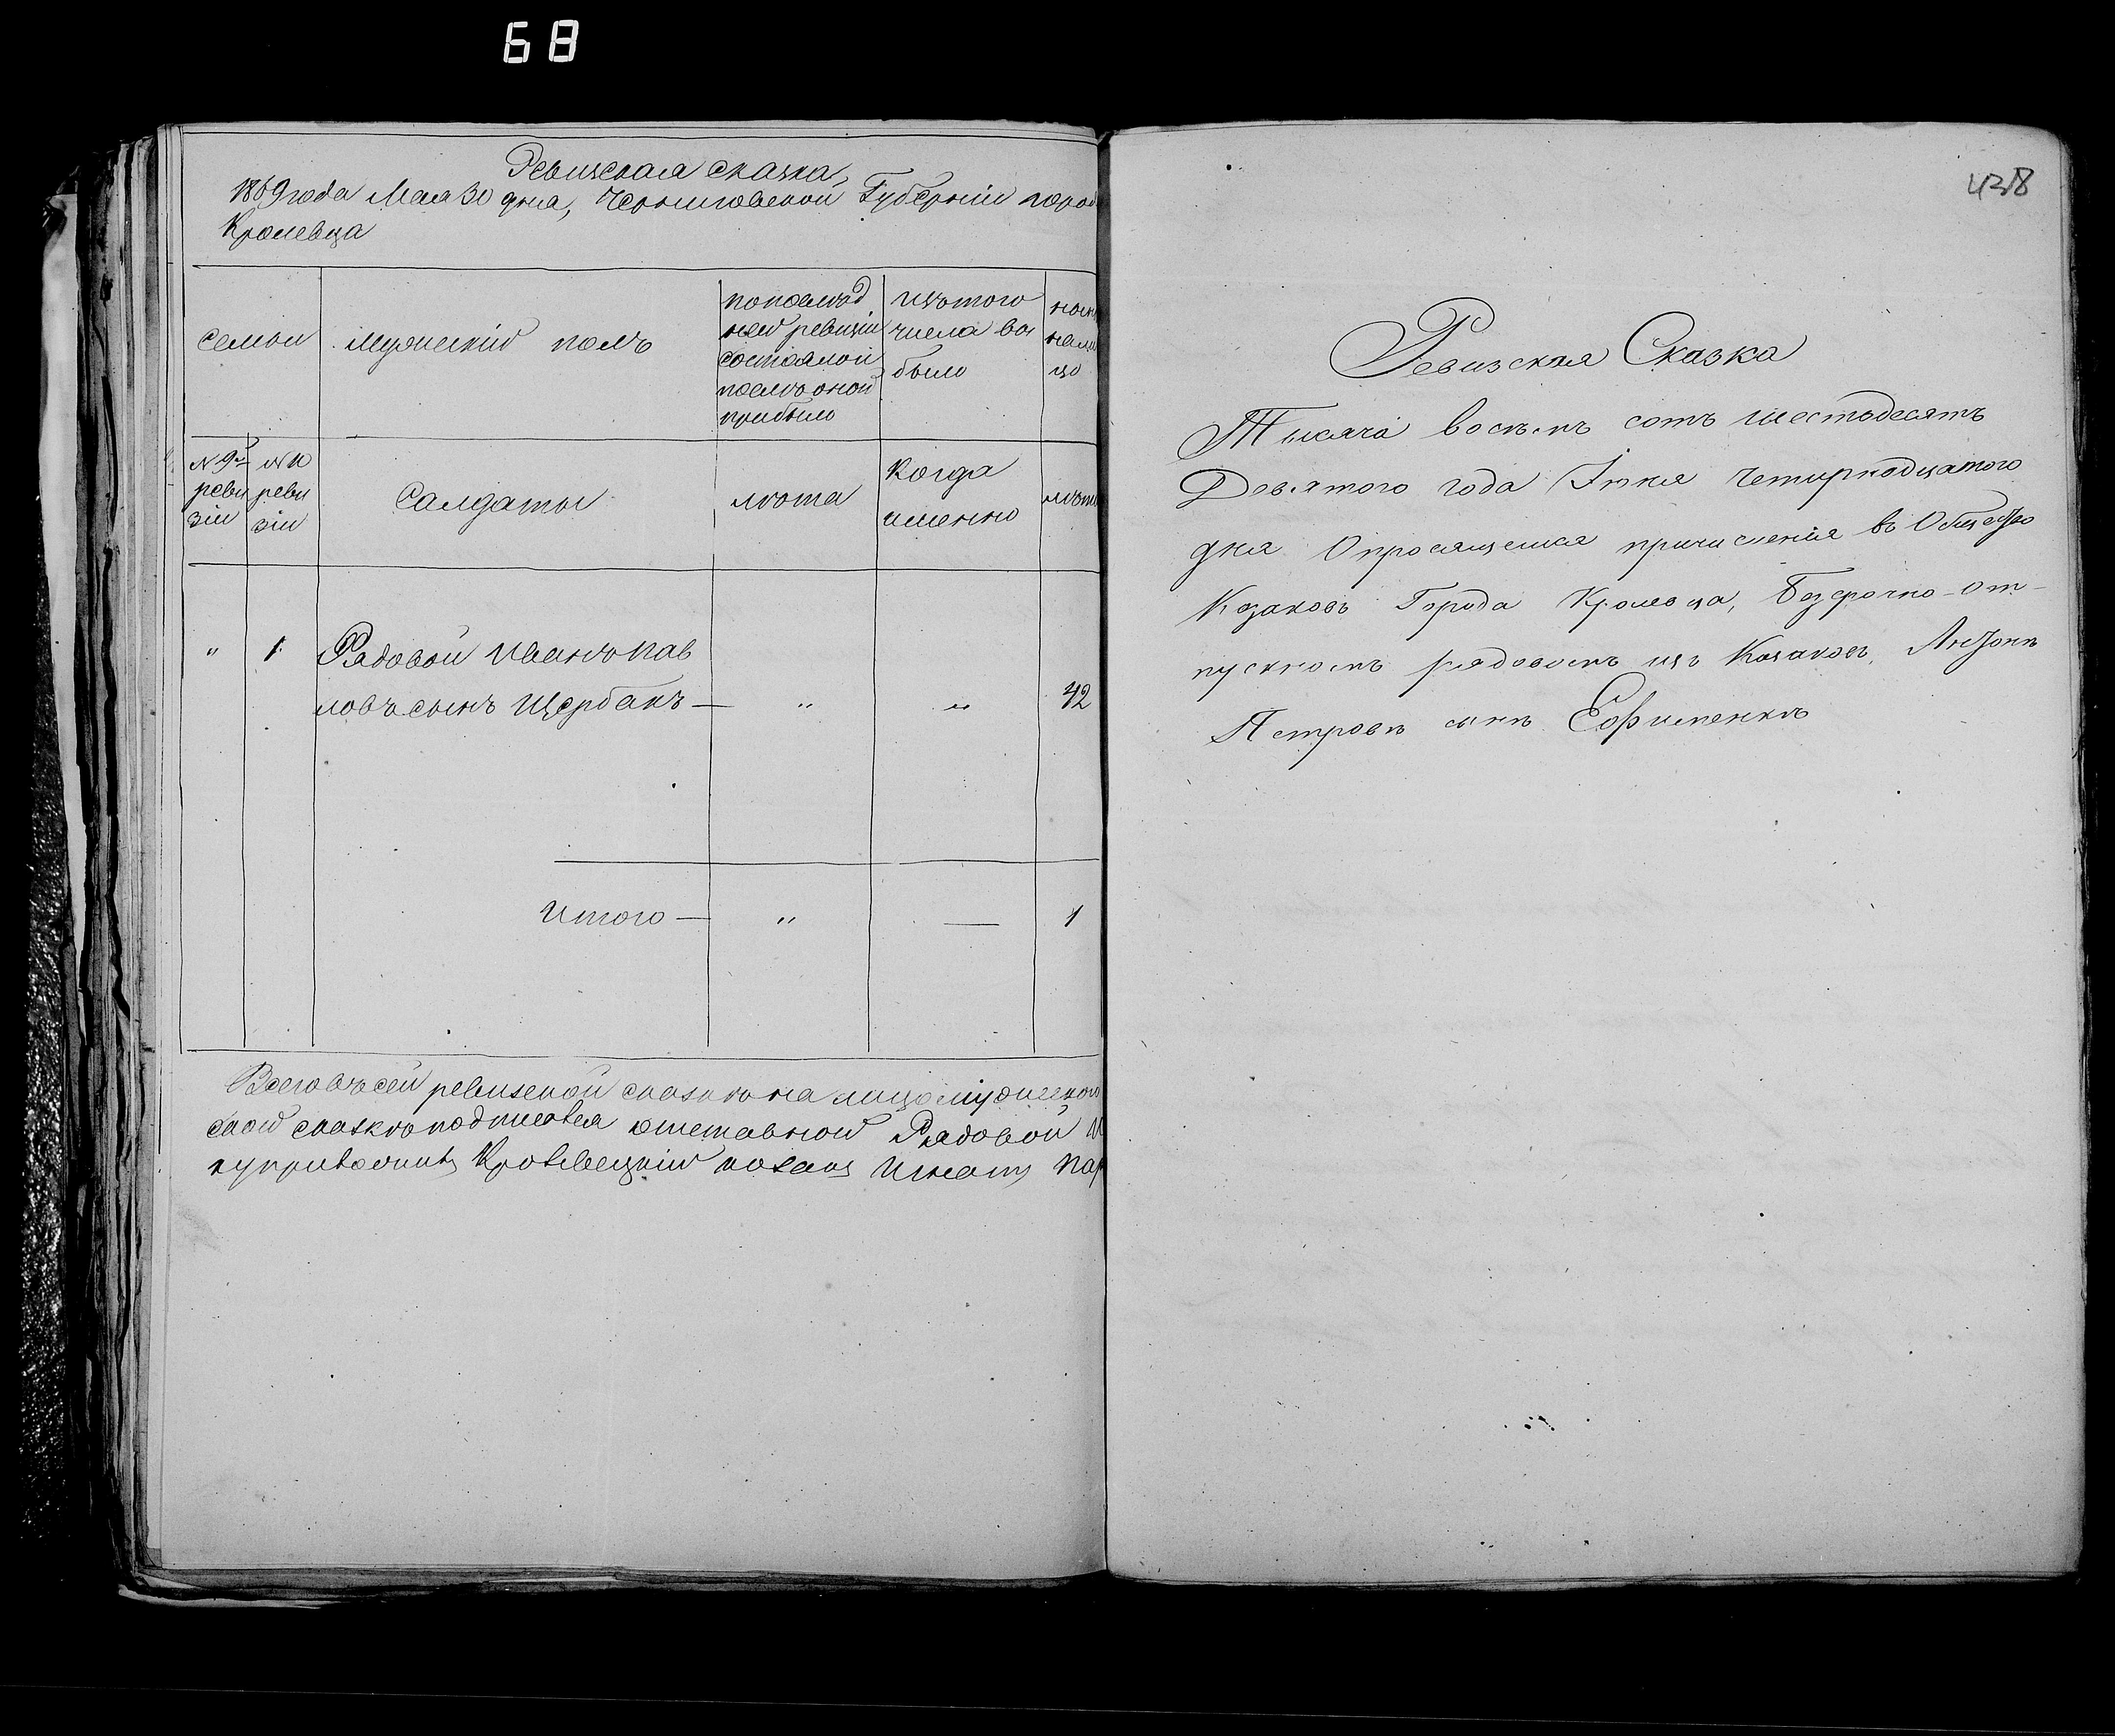 68
Ревизская сказка
1869 года Мая 30 дня, Черниговской Губерніи город
Кролевца
семьи
мужескій полъ
попослѣд
ней ревизіи
состояло и
послѣ оной
прибыло
изътого
числа вы
было
нали
цо
№ 9й
реви
зіи
№ 10
реви
зіи
Салдаты
лѣта
Когда
именно
лѣта
" 1. Рядовой Иванъ Пав
ловъ сынъ Щербакъ — " " 42
Итого — " — 1
Всего въ сей ревизской сказкѣ на лицо мужеског
сказкѣ подписался отставной Рядовой И
Кролевецкій козакъ Игнатъ Пар
438
Ревизская Сказка
Тысяча восѣмъ сотъ шестьдесятъ
Девятого года Іюня четырнадцатого
дня О просящемся причисленія въ Общество
Козаковъ Города Кролевца, Безсрочно-от-
пускномъ рядовомъ изъ Козаковъ, Антонъ
Петровъ сынъ Ефименкъ